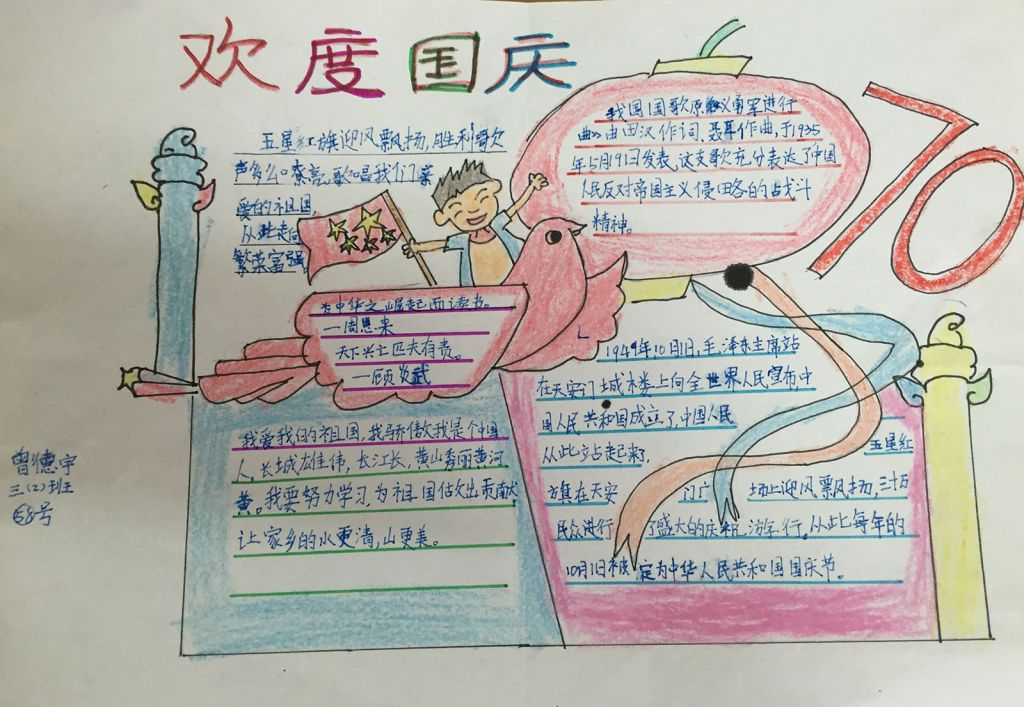 欢度国庆
70
五星红旗迎风飘扬,胜利歌
声多么嘹亮,歌唱我们亲
爱的祖国
从此走向
繁荣富强。
我国国歌原《义勇军进行
曲》由田汉作词、聂耳作曲,于1935
年5月9日发表,这支歌充分表达了中国
人民反对帝国主义侵略的战斗
精神。
为中华之崛起而读书。
—周恩来
天下兴亡匹夫有责。
—顾炎武
我爱我们的祖国,我骄傲我是个中国
人,长城雄伟,长江长,黄山秀丽黄河
黄。我要努力学习,为祖国做出贡献
让家乡的水更清,山更美。
1949年10月1日,毛泽东主席站
在天安门城楼上向全世界人民宣布,中
国人民共和国成立了,中国人民
从此站起来了,
五星红
旗在天安门广场上迎风飘扬,三十万
民众进行了盛大的庆祝游行。从此每年的
10月1日被定为中华人民共和国国庆节。
曾德宇
三(2)班
68号